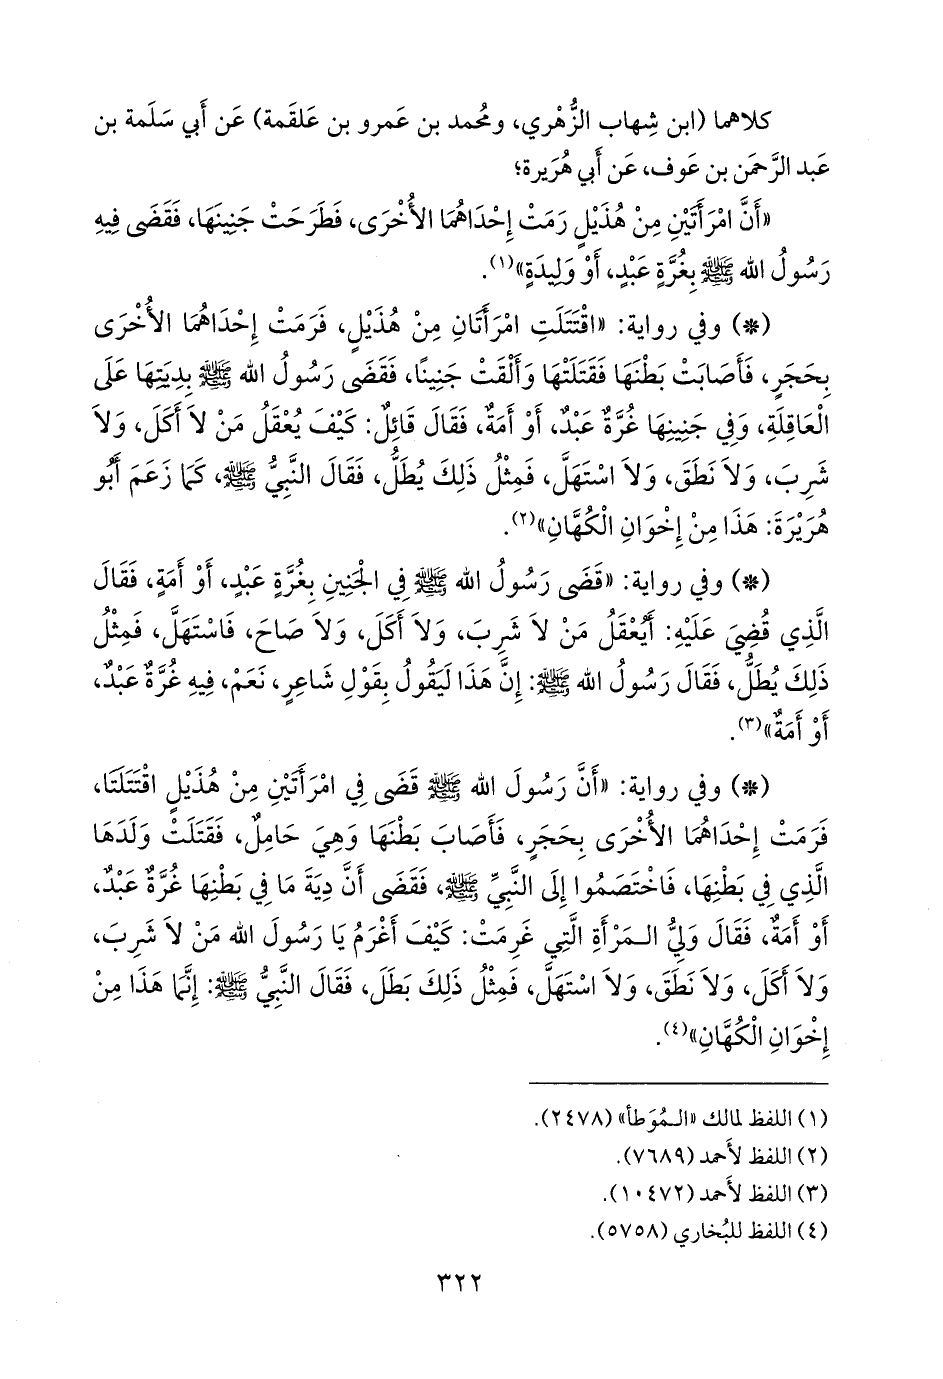 كلاهما (ابن شِهاب الزُّهْري، ومُحمد بن عَمرو بن عَلقَمة) عَن أَبي سَلَمة بن
عَبد الرَّحمَن بن عَوف، عَن أَبي هُرَيرة؛
«أَنَّ امْرَأَتَيْنِ مِنْ هُذَيْلٍ رَمَتْ إِحْدَاهُمَا الأُخْرَى، فَطَرَحَتْ جَنِينَهَا، فَقَضَى فِيهِ
رَسُولُ الله ﷺ بِغُرَّةٍ عَبْدٍ، أَوْ وَلِيدَةٍ»(١).
(*) وفي رواية: «اقْتَتَلَتِ امْرَأَتَانِ مِنْ هُذَيْلٍ، فَرَمَتْ إِحْدَاهُمَا الأُخْرَى
بِحَجَرٍ، فَأَصَابَتْ بَطْنَهَا فَقَتَلَتْهَا وَأَلْقَتْ جَنِينًا، فَقَضَى رَسُولُ الله ﷺ بِدِيَتِهَا عَلَى
الْعَاقِلَةِ، وَفِي جَنِينِهَا غُرَّةٌ عَبْدٌ، أَوْ أَمَةٌ، فَقَالَ قَائِلٌ: كَيْفَ يُعْقَلُ مَنْ لاَ أَكَلَ، وَلاَ
شَرِبَ، وَلاَ نَطَقَ، وَلاَ اسْتَهَلَّ، فَمِثْلُ ذَلِكَ يُطَلُّ، فَقَالَ النَّبِيُّ ﷺ، كَمَا زَعَمَ أَبُو
هُرَيْرَةَ: هَذَا مِنْ إِخْوَانِ الْكُهَّانِ»(٢).
(*) وفي رواية: «قَضَى رَسُولُ الله ﷺ فِي الْجَنِينِ بِغُرَّةٍ عَبْدٍ، أَوْ أَمَةٍ، فَقَالَ
الَّذِي قُضِيَ عَلَيْهِ: أَيُعْقَلُ مَنْ لاَ شَرِبَ، وَلاَ أَكَلَ، وَلاَ صَاحَ، فَاسْتَهَلَّ، فَمِثْلُ
ذَلِكَ يُطَلُّ، فَقَالَ رَسُولُ الله ﷺ: إِنَّ هَذَا لَيَقُولُ بِقَوْلِ شَاعِرٍ، نَعَمْ، فِيهِ غُرَّةٌ عَبْدٌ،
أَوْ أَمَةٌ»(٣).
(*) وفي رواية: «أَنَّ رَسُولَ الله ﷺ قَضَى فِي امْرَأَتَيْنِ مِنْ هُذَيْلٍ اقْتَتَلَتَا،
فَرَمَتْ إِحْدَاهُمَا الأُخْرَى بِحَجَرٍ، فَأَصَابَ بَطْنَهَا وَهِيَ حَامِلٌ، فَقَتَلَتْ وَلَدَهَا
الَّذِي فِي بَطْنِهَا، فَاخْتَصَمُوا إِلَى النَّبِيِّ ﷺ، فَقَضَى أَنَّ دِيَةَ مَا فِي بَطْنِهَا غُرَّةٌ عَبْدٌ،
أَوْ أَمَةٌ، فَقَالَ وَلِيُّ الـمَرْأَةِ الَّتِي غَرِمَتْ: كَيْفَ أَغْرَمُ يَا رَسُولَ الله مَنْ لاَ شَرِبَ،
وَلاَ أَكَلَ، وَلاَ نَطَقَ، وَلاَ اسْتَهَلَّ، فَمِثْلُ ذَلِكَ بَطَلَ، فَقَالَ النَّبِيُّ ﷺ: إِنَّمَا هَذَا مِنْ
إِخْوَانِ الْكُهَّانِ»(٤).
(١) اللفظ لمالك «الـمُوَطأ» (٢٤٧٨).
(٢) اللفظ لأَحمد (٧٦٨٩).
(٣) اللفظ لأَحمد (١٠٤٧٢).
(٤) اللفظ للبُخاري (٥٧٥٨).
٣٢٢